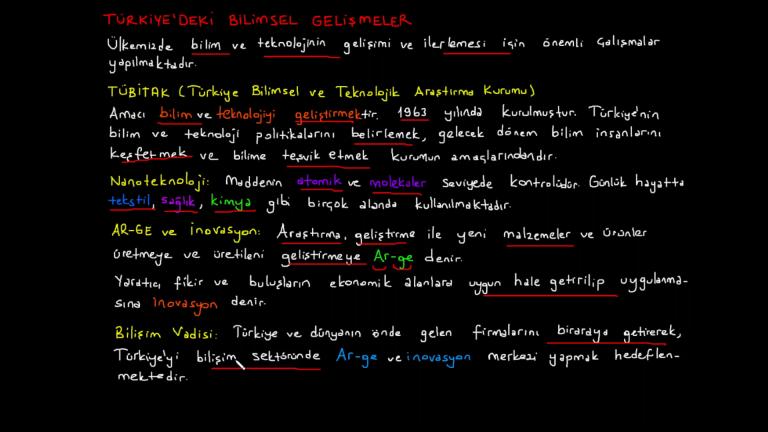 TÜRKİYE'DEKİ BİLİMSEL GELİŞMELER
Ülkemizde bilim ve teknolojinin gelişimi ve ilerlemesi için önemli çalışmalar
yapılmaktadır.
TÜBİTAK (Türkiye Bilimsel ve Teknolojik Araştırma Kurumu)
Amacı bilim ve teknolojiyi geliştirmektir. 1963 yılında kurulmuştur. Türkiye'nin
bilim ve teknoloji politikalarını belirlemek, gelecek dönem bilim insanlarını
keşfetmek ve bilime teşvik etmek kurumun amaçlarındandır.
Nanoteknoloji: Maddenin atomik ve moleküler seviyede kontrolüdür. Günlük hayatta
tekstil, sağlık, kimya gibi birçok alanda kullanılmaktadır.
AR-GE ve İnovasyon: Araştırma, geliştirme ile yeni malzemeler ve ürünler
üretmeye ve üretileni geliştirmeye Ar-ge denir.
Yaratıcı fikir ve buluşların ekonomik alanlara uygun hale getirilip uygulanma-
sına inovasyon denir.
Bilişim Vadisi: Türkiye ve dünyanın önde gelen firmalarını biraraya getirerek,
Türkiye'yi bilişim sektöründe Ar-ge ve inovasyon merkezi yapmak hedeflen-
mektedir.